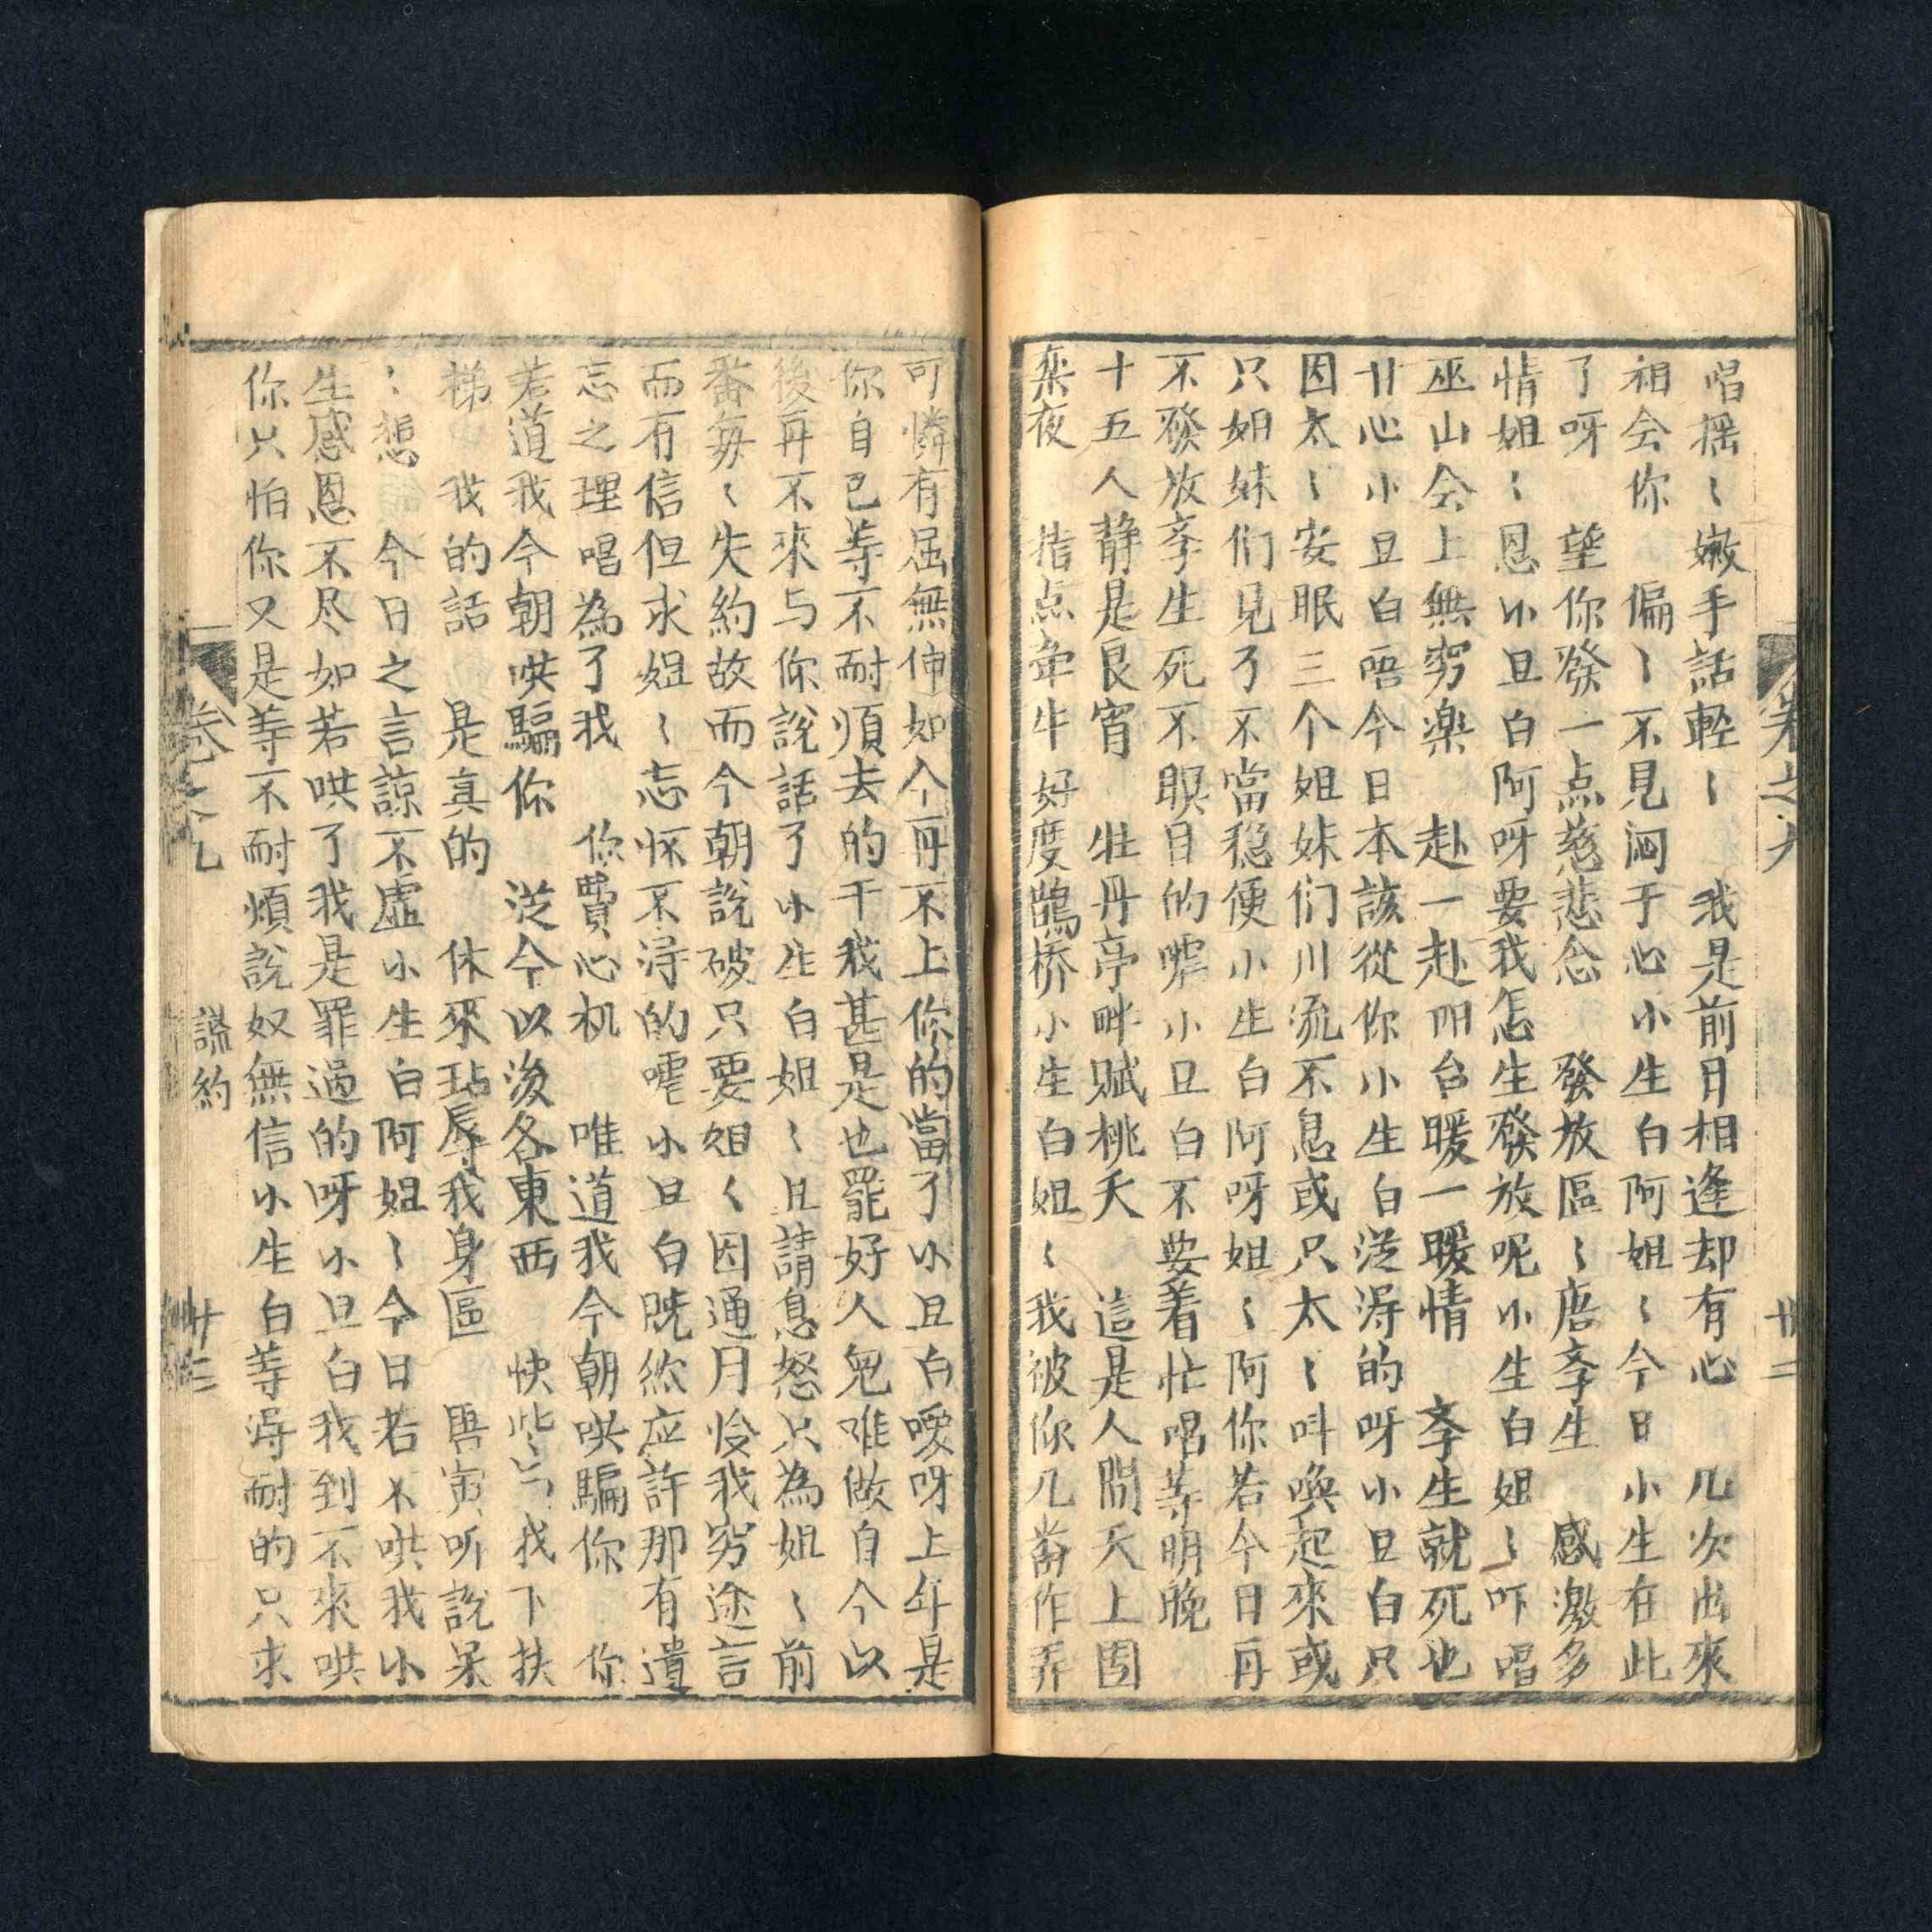 唱摇〻嫩手話輕〻　我是前日相逢却有心　几次出來
相会你　偏〻不見洄于心小生白阿姐〻今日小生在此
了呀　望你發一点慈悲念　發放區〻唐孝生　感激多
情姐〻恩小旦白阿呀要我怎生發放呢小生白姐〻吓唱
巫山会上無穷楽　赴一赴阳台暖一暖情　孝生就死也
廿心小旦白唔今日本該從你小生白泛淂的呀小旦白只
因太〻安眠三个姐妹们川流不息或只太〻叫喚起來或
只姐妹们見了不當稳便小生白阿呀姐〻阿你若今日再
不發放孝生死不瞑目的嘘小旦白不要着忙唱等明晚
十五人静是良宵　牡丹亭畔赋桃夭　這是人間天上固
桒夜　指点牵牛好度鵲桥小生白姐〻我被你几畨作弄
可憐有屈無伸如今再不上你的當了小旦白噯呀上年是
你自己等不耐煩去的干我甚是也罷好人兒难做自今以
後再不來与你說話了小生白姐〻且請息怒只為姐〻前
畨每〻失約故而今朝說破只要姐〻因通月恰我穷途言
而有信但求姐〻忘怀不淂的嘘小旦白既然应許那有遺
忘之理唱為了我　你費心机　唯道我今朝哄騙你　你
若道我今朝哄騙你　泛今以後各東西　快些与我下扶
梯　我的話　是真的　休來玷辱我身區　唐寅听說呆
〻想　今日之言諒不虚小生白阿姐〻今日若不哄我小
生感恩不尽如若哄了我是罪過的呀小旦白我到不來哄
你只怕你又是等不耐煩說奴無信小生白等淂耐的只求
卷之九　謊約　廿三